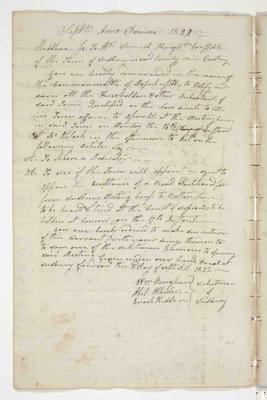 Septr. Anno Domini 1822
Middlesex Ss. To Mr. Samuel Knight Constable
of the Town of Sudbury in said County — Greeting
you are hereby commanded in the name of
the Commonwealth of Massachusetts, to Notify and
warn all the Freeholders & other Inhabitants of
said Town Qualified as the Law directs to Vote
in Town affairs to assemble at the Meeting house
in said Town on Monday the 16th
at O Clock in the afternoon to act on the
following articles
1st. To Choose a Moderator
2d. To see if the Town will appoint an agent to
oppose the acceptance of a Road
from Sudbury Meeting house to Bolton line
to be heard & had at the Court of Sessions to be
holden at Concord on the 17th Instant
you are hereby ordered to make due return
of this warrant with your doings thereon to
to some one of the Selectmen previous to opening
said Meeting
Given under our hands & seal at
Sudbury aforesaid this 2 day of Sept. A.D. 1822
Wm Brigham Selectmen
Abel Wheeler of
Enoch Kidder Sudbury